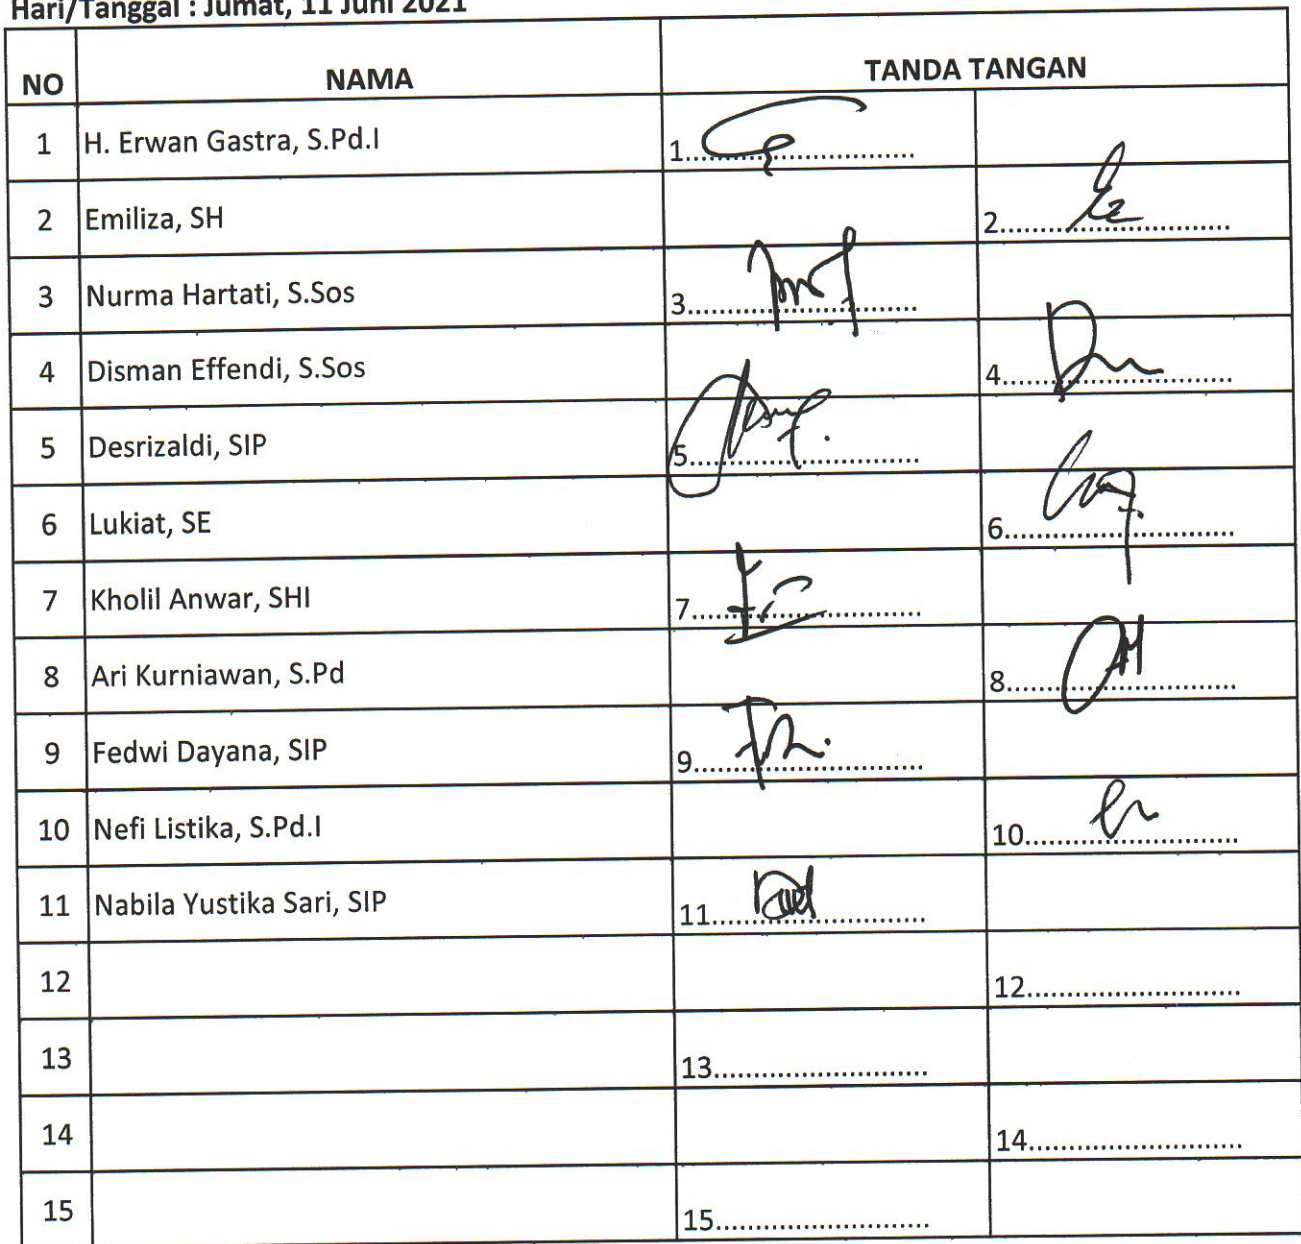 Hari/Tanggal : Jumat, 11 Juni 2021
NO NAMA TANDA TANGAN
1 H. Erwan Gastra, S.Pd.I 1..............................
2 Emiliza, SH 2..............................
3 Nurma Hartati, S.Sos 3..............................
4 Disman Effendi, S.Sos 4..............................
5 Desrizaldi, SIP 5..............................
6 Lukiat, SE 6..............................
7 Kholil Anwar, SHI 7..............................
8 Ari Kurniawan, S.Pd 8..............................
9 Fedwi Dayana, SIP 9..............................
10 Nefi Listika, S.Pd.I 10............................
11 Nabila Yustika Sari, SIP 11............................
12 12............................
13 13............................
14 14............................
15 15............................